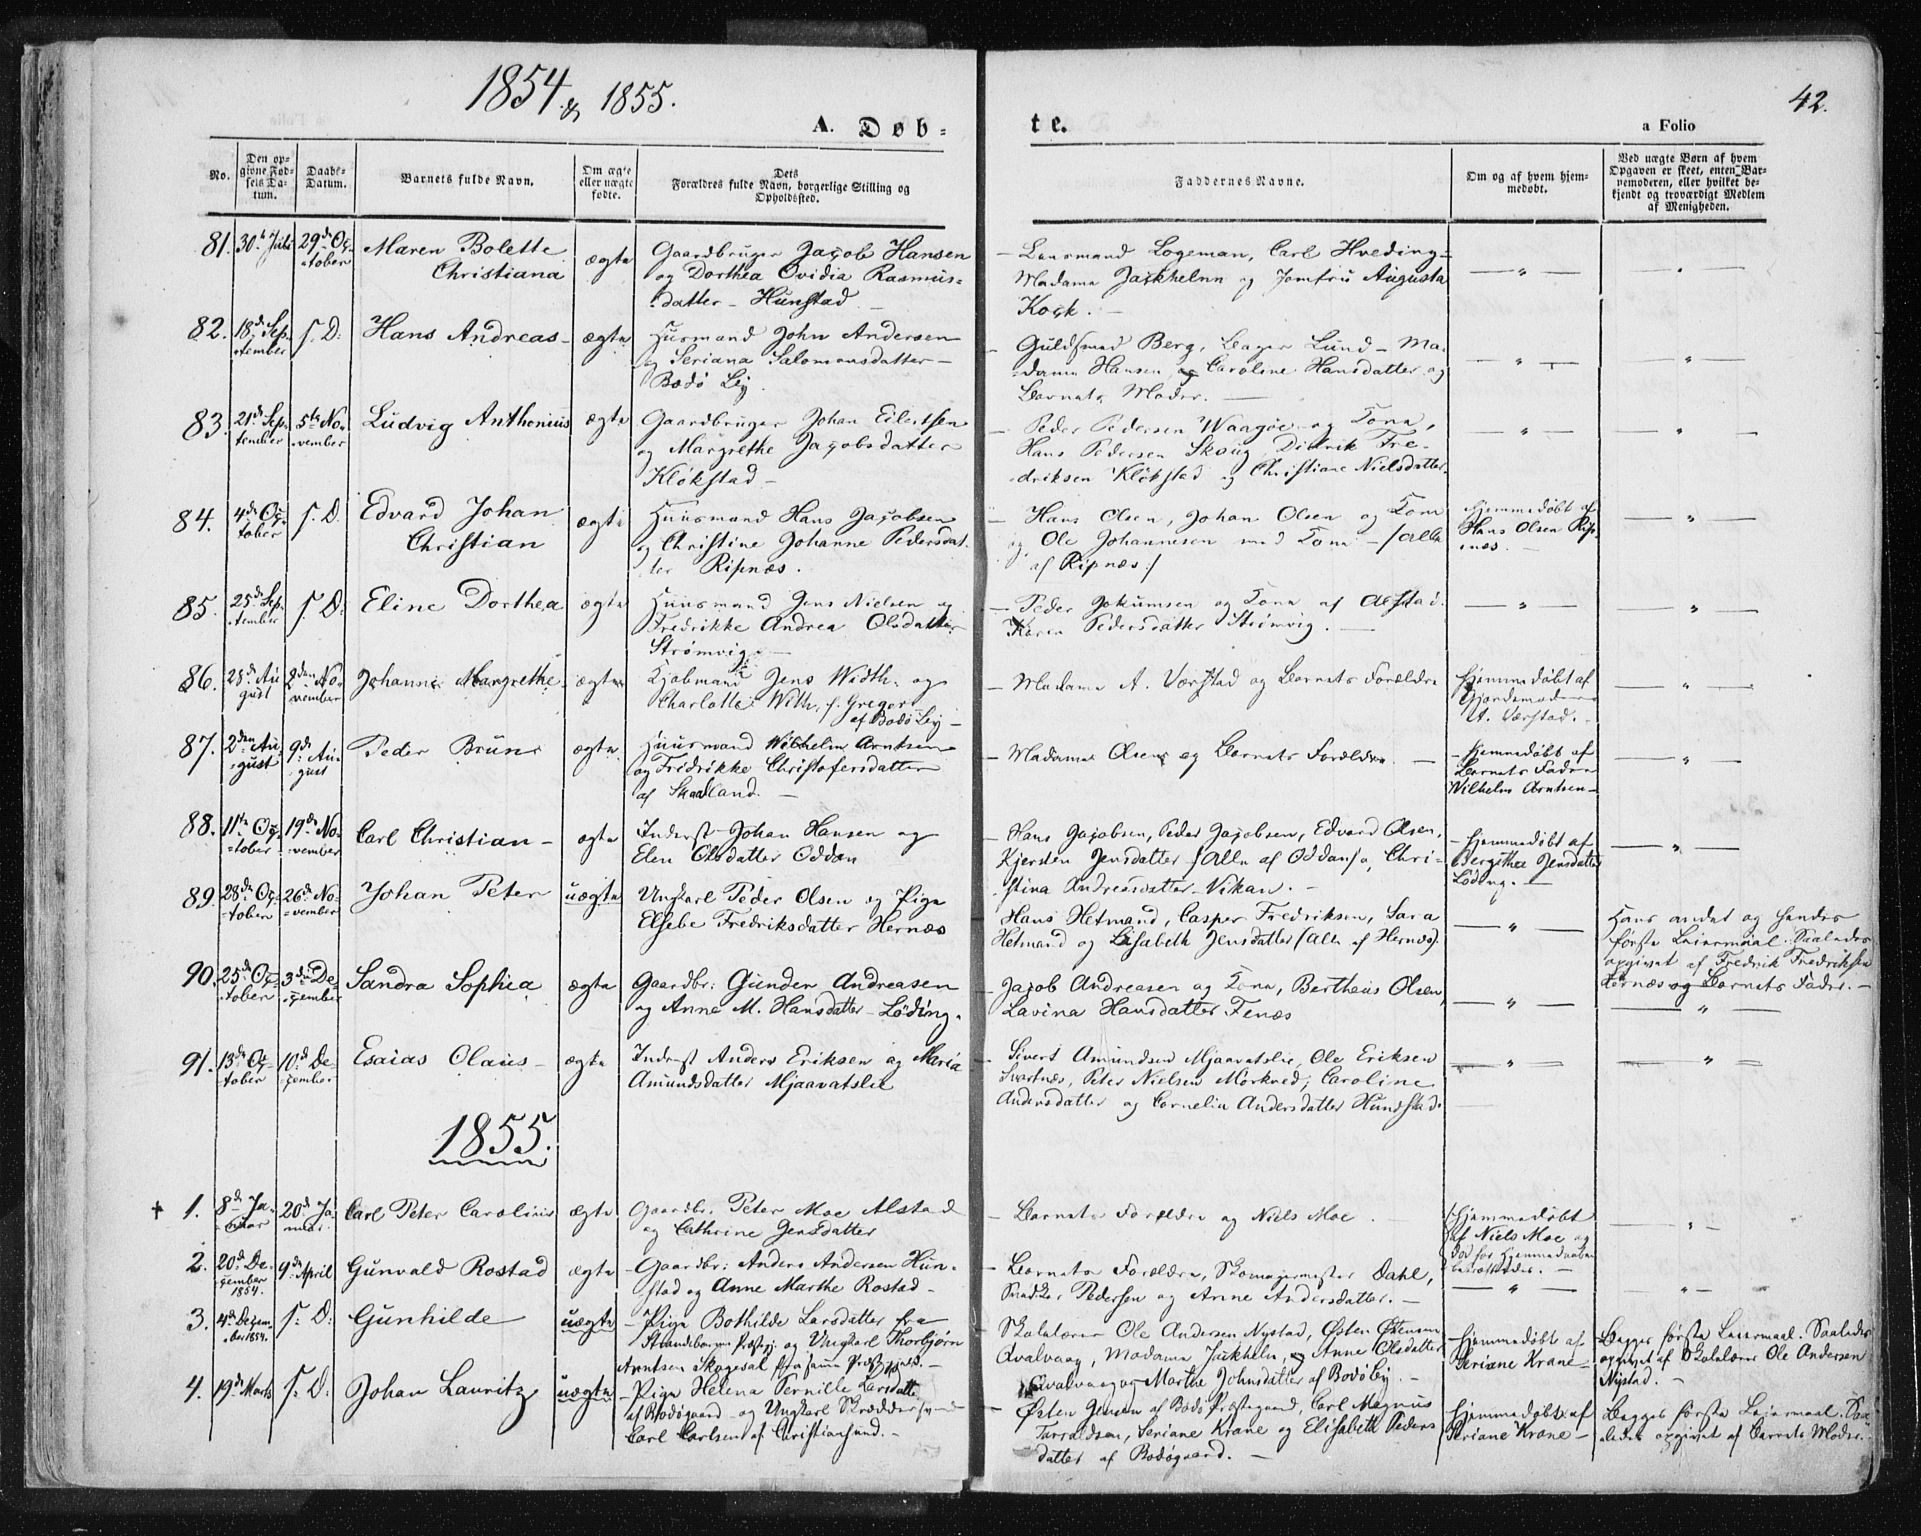 1854 & 1855.
42.
A. Døb-
te.
a Folio
No.
Den op-
givne Fød-
sels Da-
tum.
Daabs-
Datum.
Barnets fulde Navn.
Om ægte
eller uægte
fødte.
Dets
Forældres fulde Navn, borgerlige Stilling og
Opholdssted.
Faddernes Navne.
Om og af hvem hjem-
medøbt.
Ved uægte Børn af hvem
Opgaven er skeet, enten Bar-
nemoderen, eller hvilket be-
kjendt og troværdigt Medlem
af Menigheden.
81. 30te Juli 29de Oc-
tober
Maren Bolette
Christiana
ægte
Gaardbruger Jacob Hansen
og Dorthea Ovidia Rasmus-
datter - Hunstad -
- Lensmand Logeman, Carl Hveding -
Madame Jackhelnn og Jomfru Augusta
Kock. -
82. 18de Sep-
tember
S. D.
Hans Andreas -
ægte
Huusmand John Andersen
og Seriana Salomonsdatter -
Bodø Ley
- Guldsmed Berg, Bager Lund - Ma-
dame Hansen og Caroline Hansdatter og
Barnets Moder. -
83. 21de Sep-
tember
5te No-
vember
Ludvig Anthonius
ægte
Gaardbruger Johan Eilertsen
og Margrethe Jacobsdatter
Kløkstad -
- Peder Pedersen Waagøe og Kona,
Hans Pedersen Skoug, Didrik Fre-
driksen Kløkstad og Christiane Nielsdatter.
84. 4de Oc-
tober
S. D.
Edvard Johan
Christian
ægte
Huusmand Hans Jacobsen
og Christine Johanne Pedersdat-
ter Ripnæs.
- Hans Olsen, Johan Olsen og Kone
og Ole Johannesen med Kona - /alle
af Ripnæs./
Hjemmedøbt af
Hans Olsen Rip-
næs. -
85. 25de Sep-
tember
S. D.
Eline Dorthea
ægte
Huusmand Jens Nielsen og
Fredrikke Andrea Olsdatter
Strømvig. -
- Peder Jokumsen og Kona af Alstad.
Karen Pedersdatter Strømvig. -
86. 25de Au-
gust
2den No-
vember
Johanne Margrethe
ægte
Kjøbmand Jens Width og
Charlotte With, f. Greger
af Bodø Ley -
- Madame A. Værstad og Barnets Forældre
Hjemmedøbt af
Gjordemoder
A. Værstad. -
87. 2den Au-
gust
9de Au-
gust
Peder Bruun
ægte
Huusmand Wilhelm Arntsen
og Fredrikke Christofersdatter
af Skaaland. -
- Madame Olsen og Barnets Forældre. -
Hjemmedøbt af
Barnets Fader
Wilhelm Arntsen -
88. 11te Oc-
tober
19de No-
vember
Carl Christian -
ægte
Inderst Johan Hansen og
Elen Olsdatter Oddan
- Hans Jacobsen, Peder Jacobsen, Edvard Olsen,
Kjersten Jensdatter /Alle af Oddan/ o, Chri-
stina Andreasdatter Vikan. -
Hjemmedøbt af
Bergithe Jensdatter
Løding. -
89. 28de Oc-
tober
26de No-
vember
Johan Peter
uægte
Ungkarl Peder Olsen og Pige
Elsebe Fredriksdatter Hernæs
Hans Hetmand, Casper Fredriksen, Sara
Hetmand og Elisabeth Jensdatter (Alle af Hernæs).
Hans andet og hendes
første Leiermaal. Saaledes
opgivet af Fredrik Fredriksen
Hernæs og Barnets Fader. -
90. 25de Oc-
tober
3die De-
cember
Sandra Sophia
ægte
Gaardbr: Gunder Andreasen
og Anne M. Hansdatter - Løding.
- Jacob Andreasen og Kona, Bertheus Olsen,
Lavina Hansdatter Fenæs
91. 13de Oc-
tober
10de De-
cember
Esaias Olaus -
ægte
Inderst Anders Eriksen og Maria
Amundsdatter Mjaavatslie
- Sivert Amundsen Mjaavatslie, Ole Eriksen
Svartnæs, Peter Nielsen Mørkved, Caroline
Andersdatter og Cornelia Andersdatter Hundstad.
1855.
+ 1. 8de Ja-
nuar
20de Ja-
nuar
Carl Peter Carolius
ægte
Gaardbr. Peter Moe Alstad
og Cathrine Jensdatter
- Barnets Forældre og Niels Moe.
Hjemmedøbt
af Niels Moe og
død før Hjemmedaaben
bekræftedes. -
2. 20de De-
cember
1854.
9de April
Gunvald Rostad
ægte
- Gaardbr: Anders Andersen Hun-
stad og Anne Marthe Rostad -
- Barnets Forældre, Skomagermester Dahl,
Snedker Pedersen og Anne Andersdatter. -
3. 4de Decem-
ber 1854.
S. D.
Gunhilde
uægte
- Pige Bothilde Larsdatter fra
Strandebarm Præstegj og Ungkarl Thorbjørn
Arntsen Skogesal fra samme Præstegjeld. -
- Skolelærer Ole Andersen Nystad, Østen Østensen
Kvalvaag, Madame Jackheln, og Anne Olsdatter
Kvalvaag og Marthe Johnsdatter af Bodø Ley. -
Hjemmedøbt af
Seriane Krane -
Begges første Leiermaal. Saaledes
opgivet af Skolelærer Ole Andersen
Nystad. -
4. 19de Marts
S. D.
Johan Lauritz
uægte
- Pige Helena Pernille Larsdatter
af Bodøgaard - og Ungkarl Skræddersvend
Carl Carlsen af Christiansund. -
- Østen Jensen af Bodø Præstegaard, Carl Magnus
Tarraldsen, Seriane Krane og Elisabeth Peders-
datter af Bodøgaard. -
Hjemmedøbt af
Seriane Krane -
Begges første Leiermaal. Saa-
ledes opgivet af Barnets Moder.